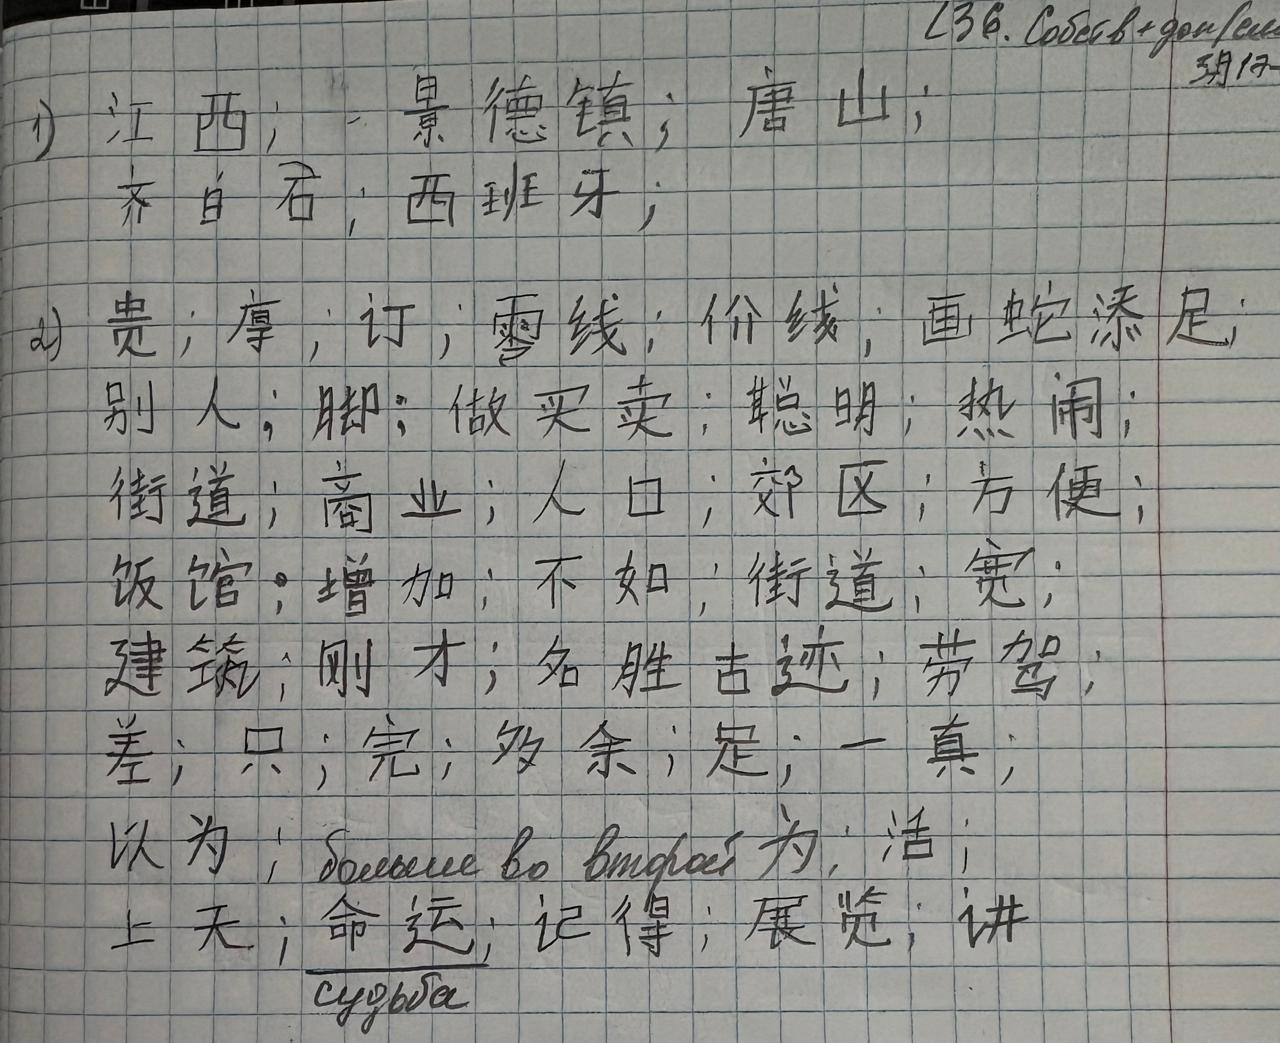 L36. Собств + доп/сл
3月17
1) 江西; - 景德镇; 唐山;
齐白石; 西班牙;
2) 贵; 厚; 订; 零线; 价线; 画蛇添足;
别人; 脚; 做买卖; 聪明; 热闹;
街道; 商业; 人口; 郊区; 方便;
饭馆; 增加; 不如; 街道; 宽;
建筑; 刚才; 名胜古迹; 劳驾;
差; 只; 完; 多余; 足; 一真;
以为; больше во второй 为; 活;
上天; 命运; 记得; 展览; 讲
судьба